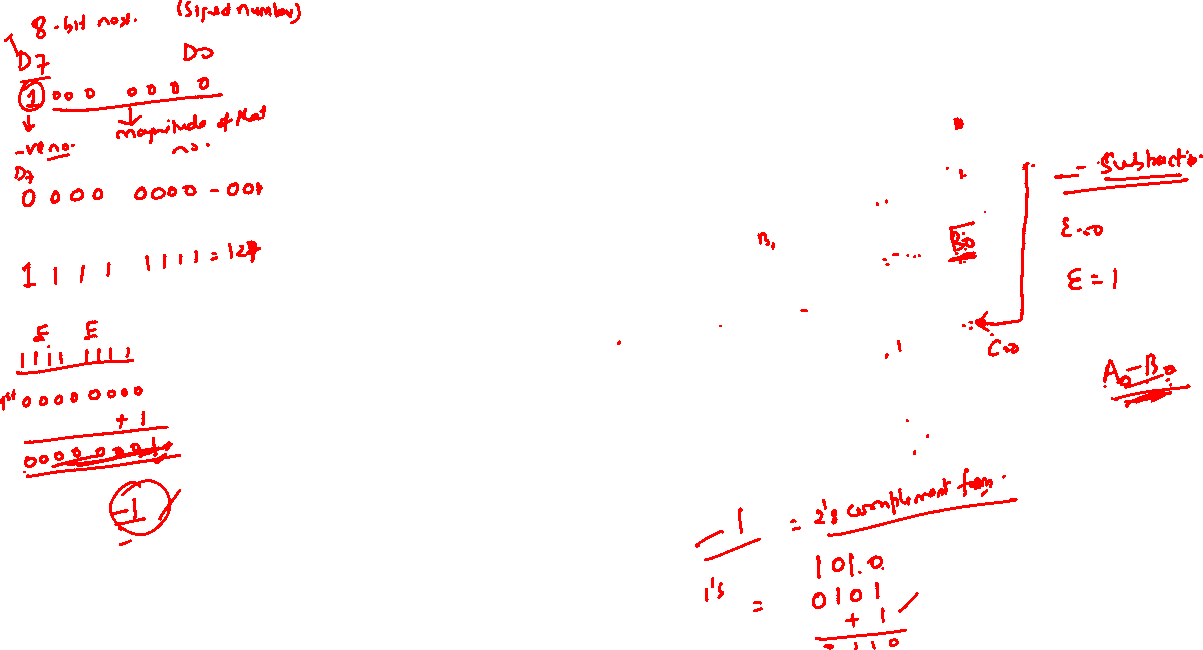 8-bit nos. (Signed number)
D7 D0
1 000 0000
-ve no. magnitude of that
no.
D7
0 000 0000 - 00
1 1 1 1 1111 = 127
F F
1111 1111
1st 0000 0000
+ 1
0000 0001
-1
B,
B0
- Subtraction
E=0
E = 1
C=0
A0-B0
-1 = 2's complement form.
1010
1's = 0101
+ 1
0110